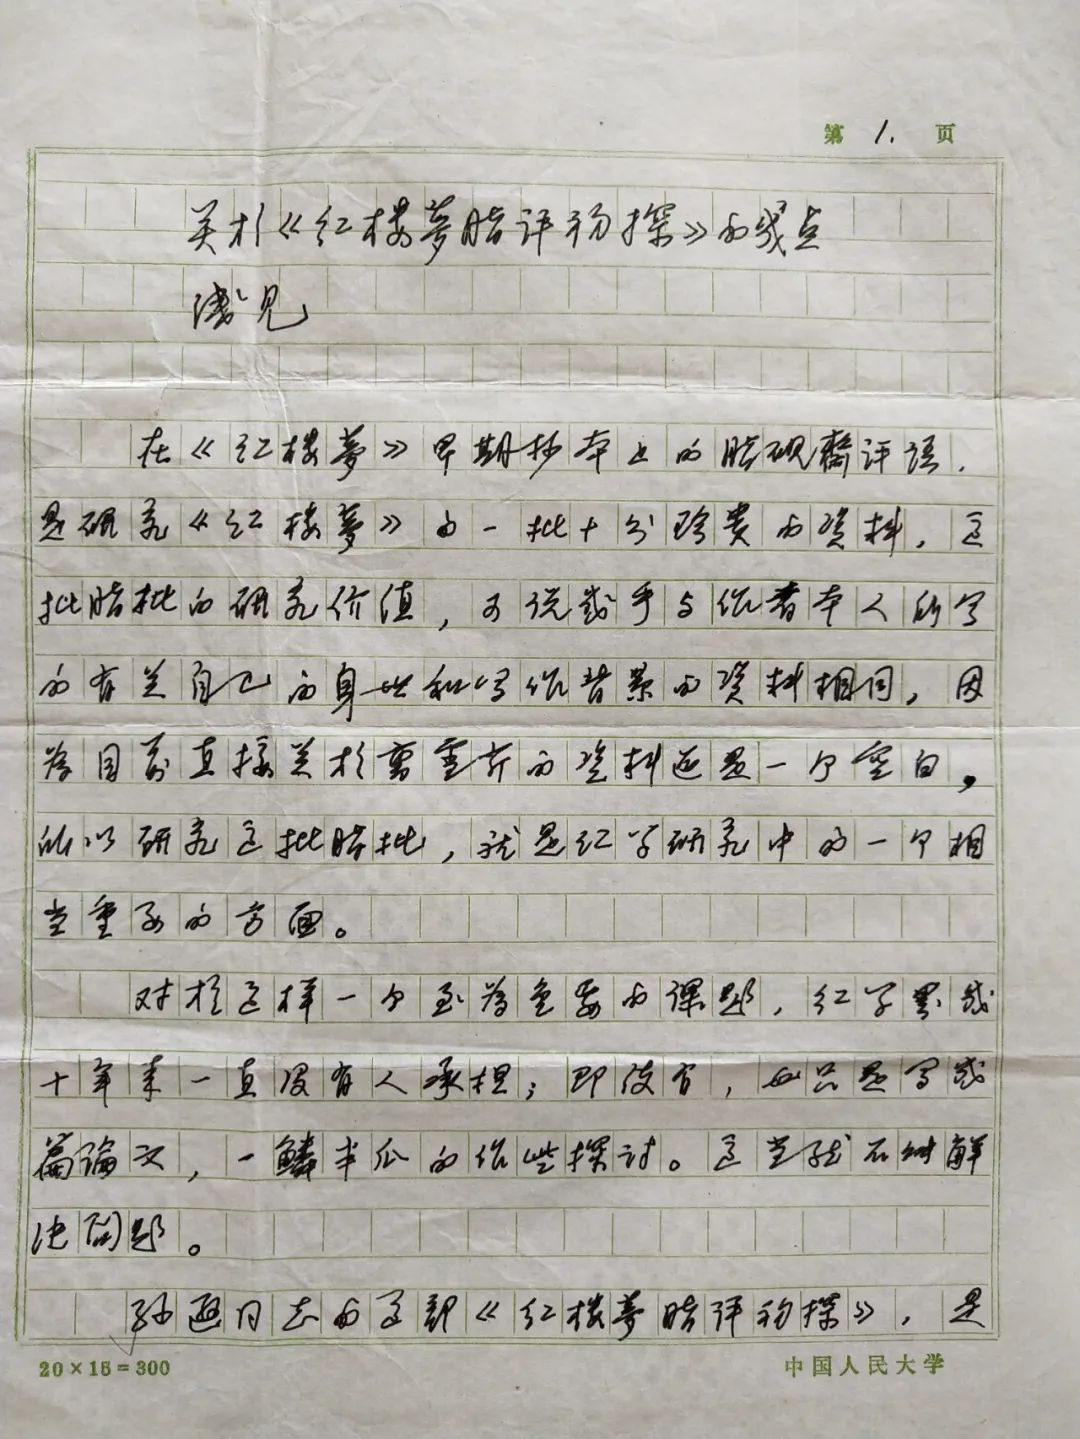 第1.页
关于《红楼夢脂评初探》的几点
浅见
在《红楼夢》早期抄本上的脂砚斋评语,
是研究《红楼夢》的一批十分珍贵的资料,这
批脂批的研究价值,可说几乎与作者本人所写
的有关自己的身世和写作背景的资料相同,因
为目前直接关于曹雪芹的资料还是一个空白,
所以研究这批脂批,就是红学研究中的一个相
当重要的方面。
对于这样一个至为重要的课题,红学界几
十年来一直没有人承担;即使有,也只是写几
篇论文,一鳞半爪的作些探讨。这当然不能解
决问题。
孙逊同志的这部《红楼夢脂评初探》,是
20×15=300
中国人民大学